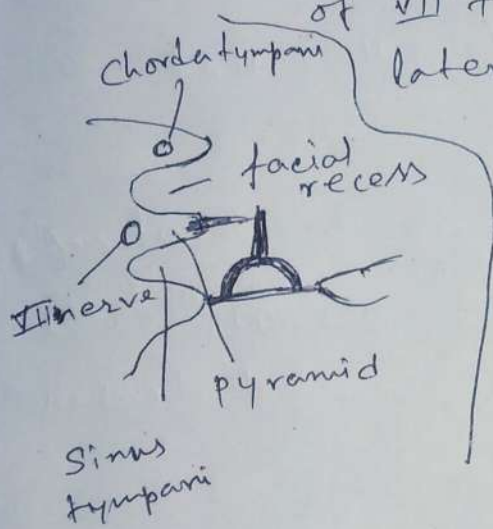 of VII
Chorda tympani
later
facial
recess
VII nerve
pyramid
Sinus
tympani